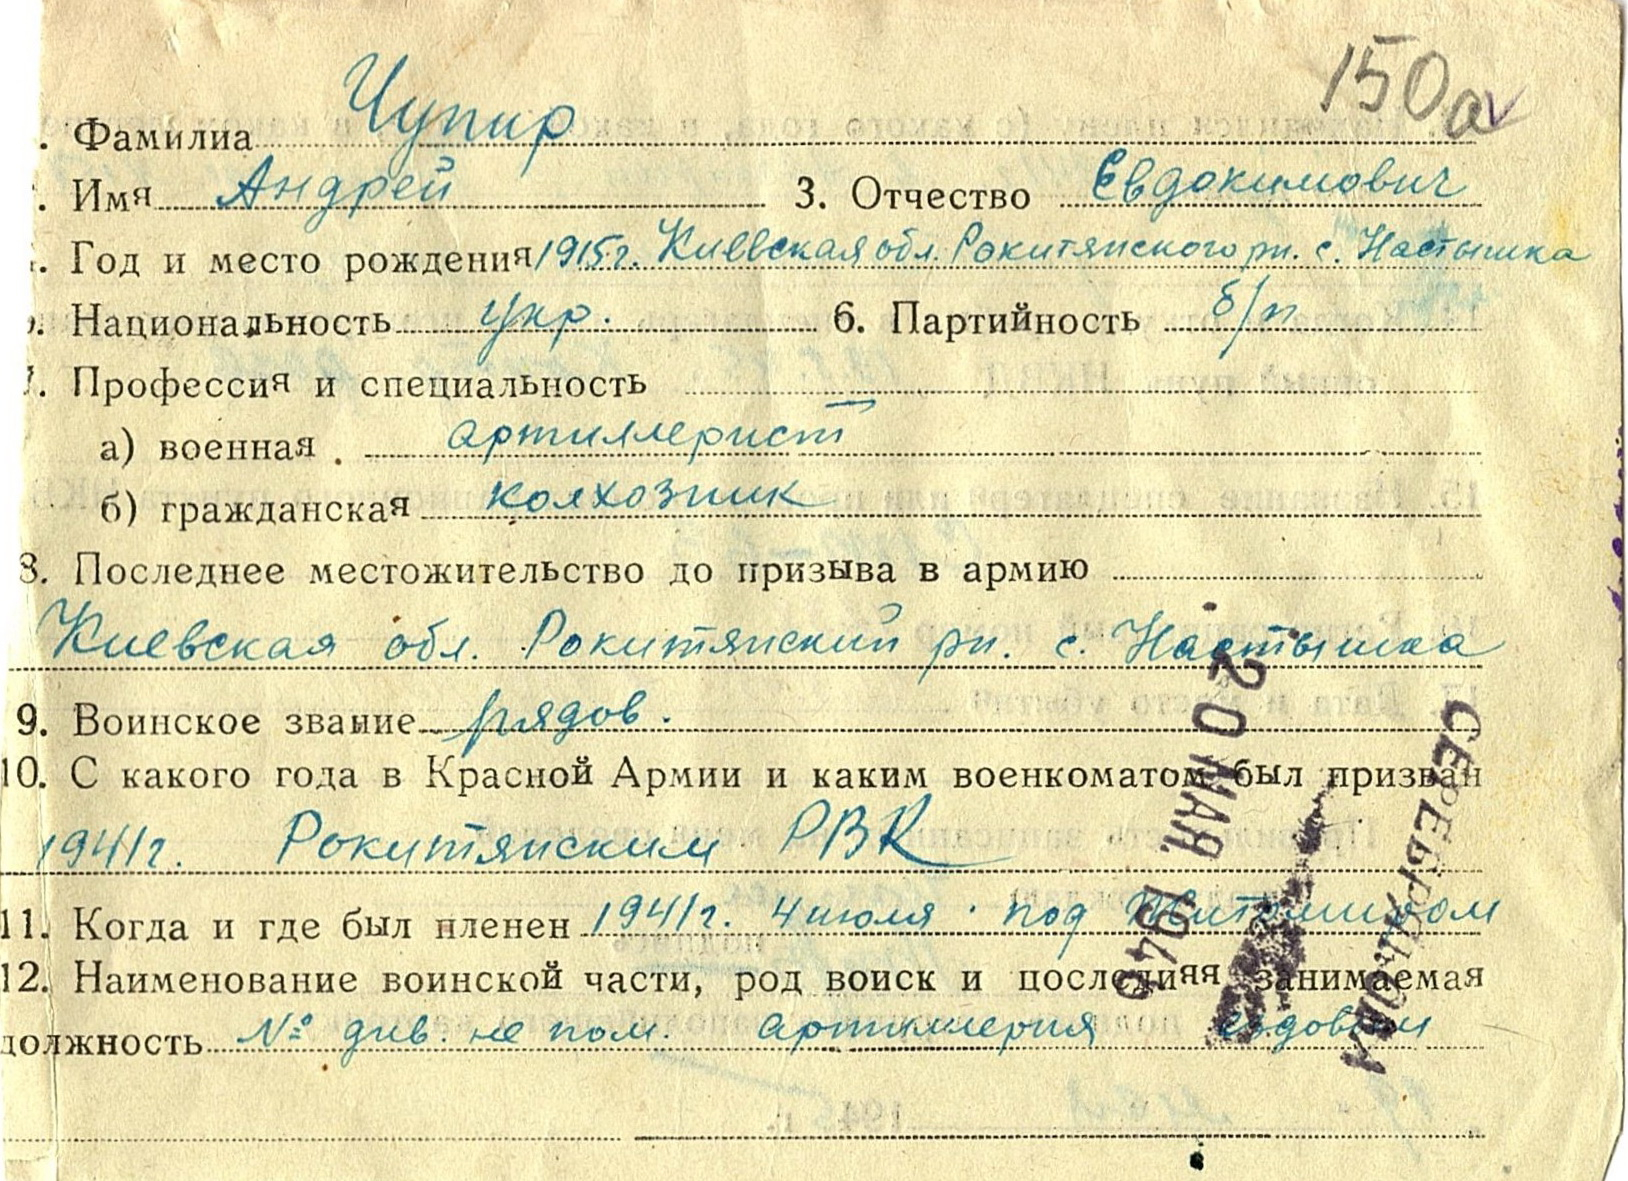 150а
. Фамилиа Чупир
. Имя Андрей 3. Отчество Евдокимович
. Год и место рождения 1915г. Киевская обл. Рокитянского рн. с. Настышка
. Национальность укр. 6. Партийность б/п
7. Профессия и специальность
а) военная . артиллерист
б) гражданская колхозник
8. Последнее местожительство до призыва в армию
Киевская обл. Рокитянский рн. с. Настышка
9. Воинское звание рядов.
10. С какого года в Красной Армии и каким военкоматом был призван
1941г. Рокитянским РВК
11. Когда и где был пленен 1941г. 4 июля. под Житомиром
12. Наименование воинской части, род воиск и последняя занимаемая
должность № див. не пом. артиллерия ездовым
20 МАЯ 1945